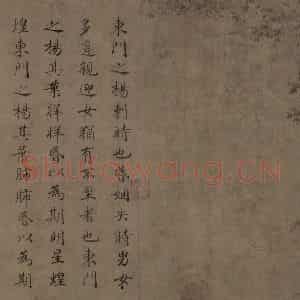 東門之楊刺時也昏姻失時男女
多違親迎女猶有不至者也東門
之楊其葉牂牂昏以為期明星煌
煌東門之楊其葉肺肺昏以為期
Shufawang.CN